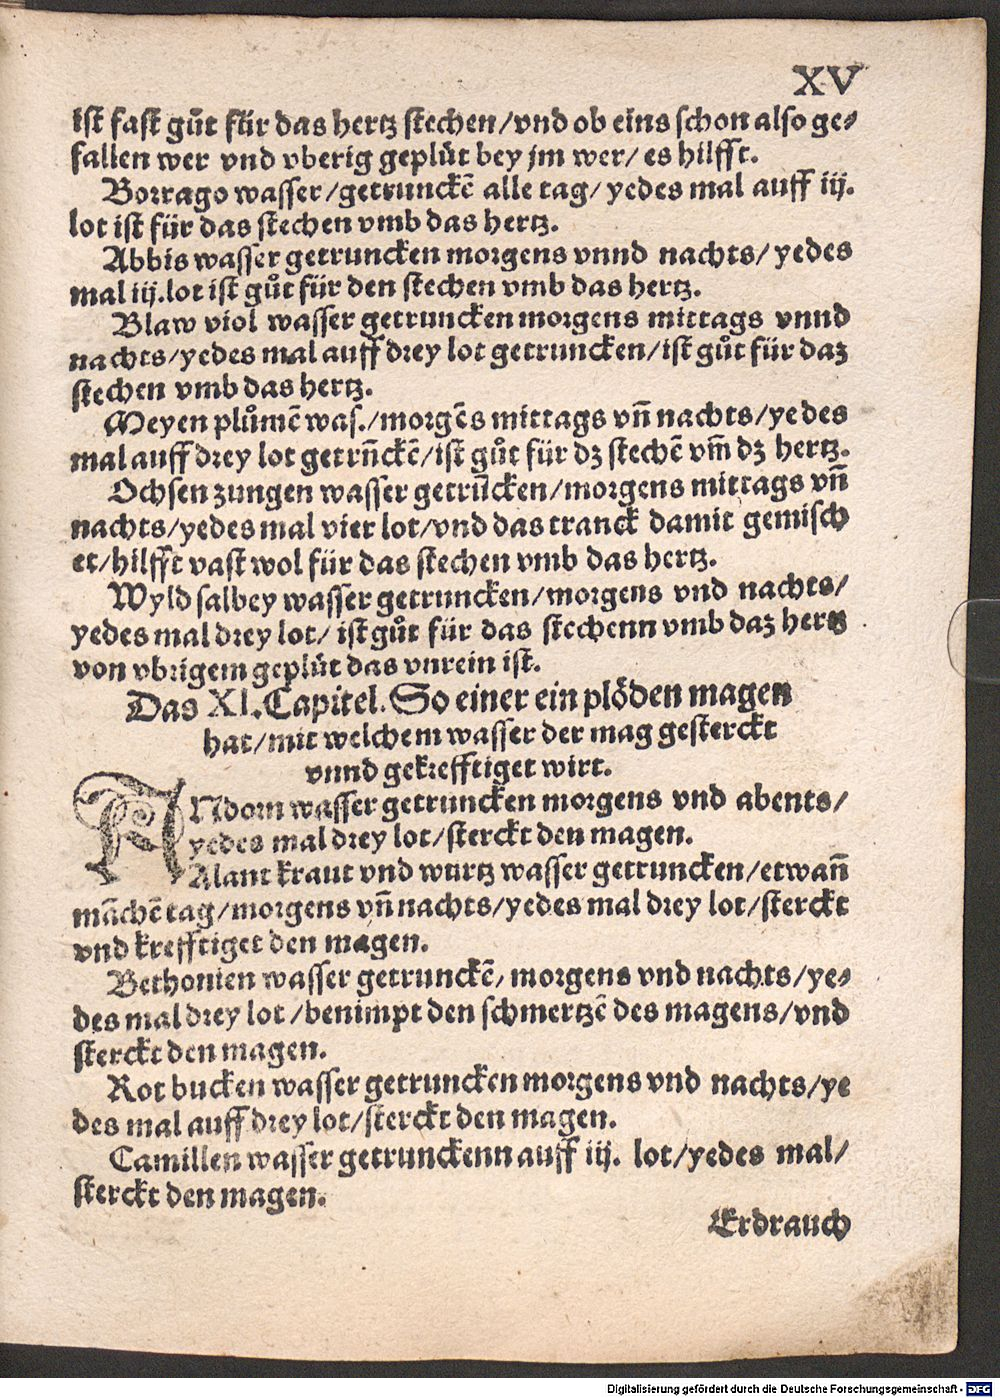 XV
ist fast gůt für das hertz stechen/vnd ob eins schon also ge⸗
fallen wer vnd vberig geplüt bey jm wer/ es hilfft.
Borrago wasser/getrunckē alle tag/ yedes mal auff iij.
lot ist für das stechen vmb das hertz.
Abbis wasser getruncken morgens vnnd nachts/ yedes
mal iij.lot ist gůt für den stechen vmb das hertz.
Blaw viol wasser getruncken morgens mittags vnnd
nachts/yedes mal auff drey lot getruncken/ist gůt für daz
stechen vmb das hertz.
Meyen plůmē was./morgēs mittags vn̄ nachts/yedes
mal auff drey lot getrn̄ckē/ist gůt für dz stechē vm̄ dz hertz.
Ochsen zungen wasser getrūcken/morgens mittags vn̄
nachts/yedes mal vier lot/vnd das tranck damit gemisch
et/hilfft vast wol für das stechen vmb das hertz.
Wyld salbey wasser getruncken/morgens vnd nachts/
yedes mal drey lot/ ist gůt für das stechenn vmb daz hertz
von vbrigem geplüt das vnrein ist.
Das XI.Capitel.So einer ein plöden magen
hat/mit welchem wasser der mag gesterckt
vnnd gekrefftiget wirt.
ANdorn wasser getruncken morgens vnd abents/
yedes mal drey lot/sterckt den magen.
Alant kraut vnd wurtz wasser getruncken/etwan̄
māchē tag/morgens vn̄ nachts/yedes mal drey lot/sterckt
vnd krefftiget den magen.
Bethonien wasser getrunckē/ morgens vnd nachts/ye⸗
des mal drey lot/benimpt den schmertzē des magens/vnd
sterckt den magen.
Rot bucken wasser getruncken morgens vnd nachts/ye
des mal auff drey lot/sterckt den magen.
Camillen wasser getrunckenn auff iij. lot/yedes mal/
sterckt den magen.
Erdrauch
Digitalisierung gefördert durch die Deutsche Forschungsgemeinschaft - DFG